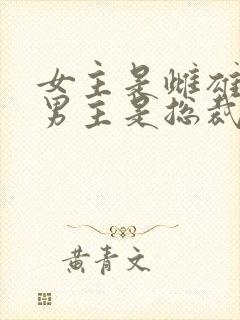 女主是雌雄
男主是总裁
黄青文